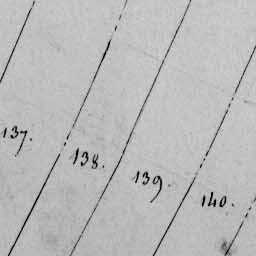 137.
138.
139.
140.